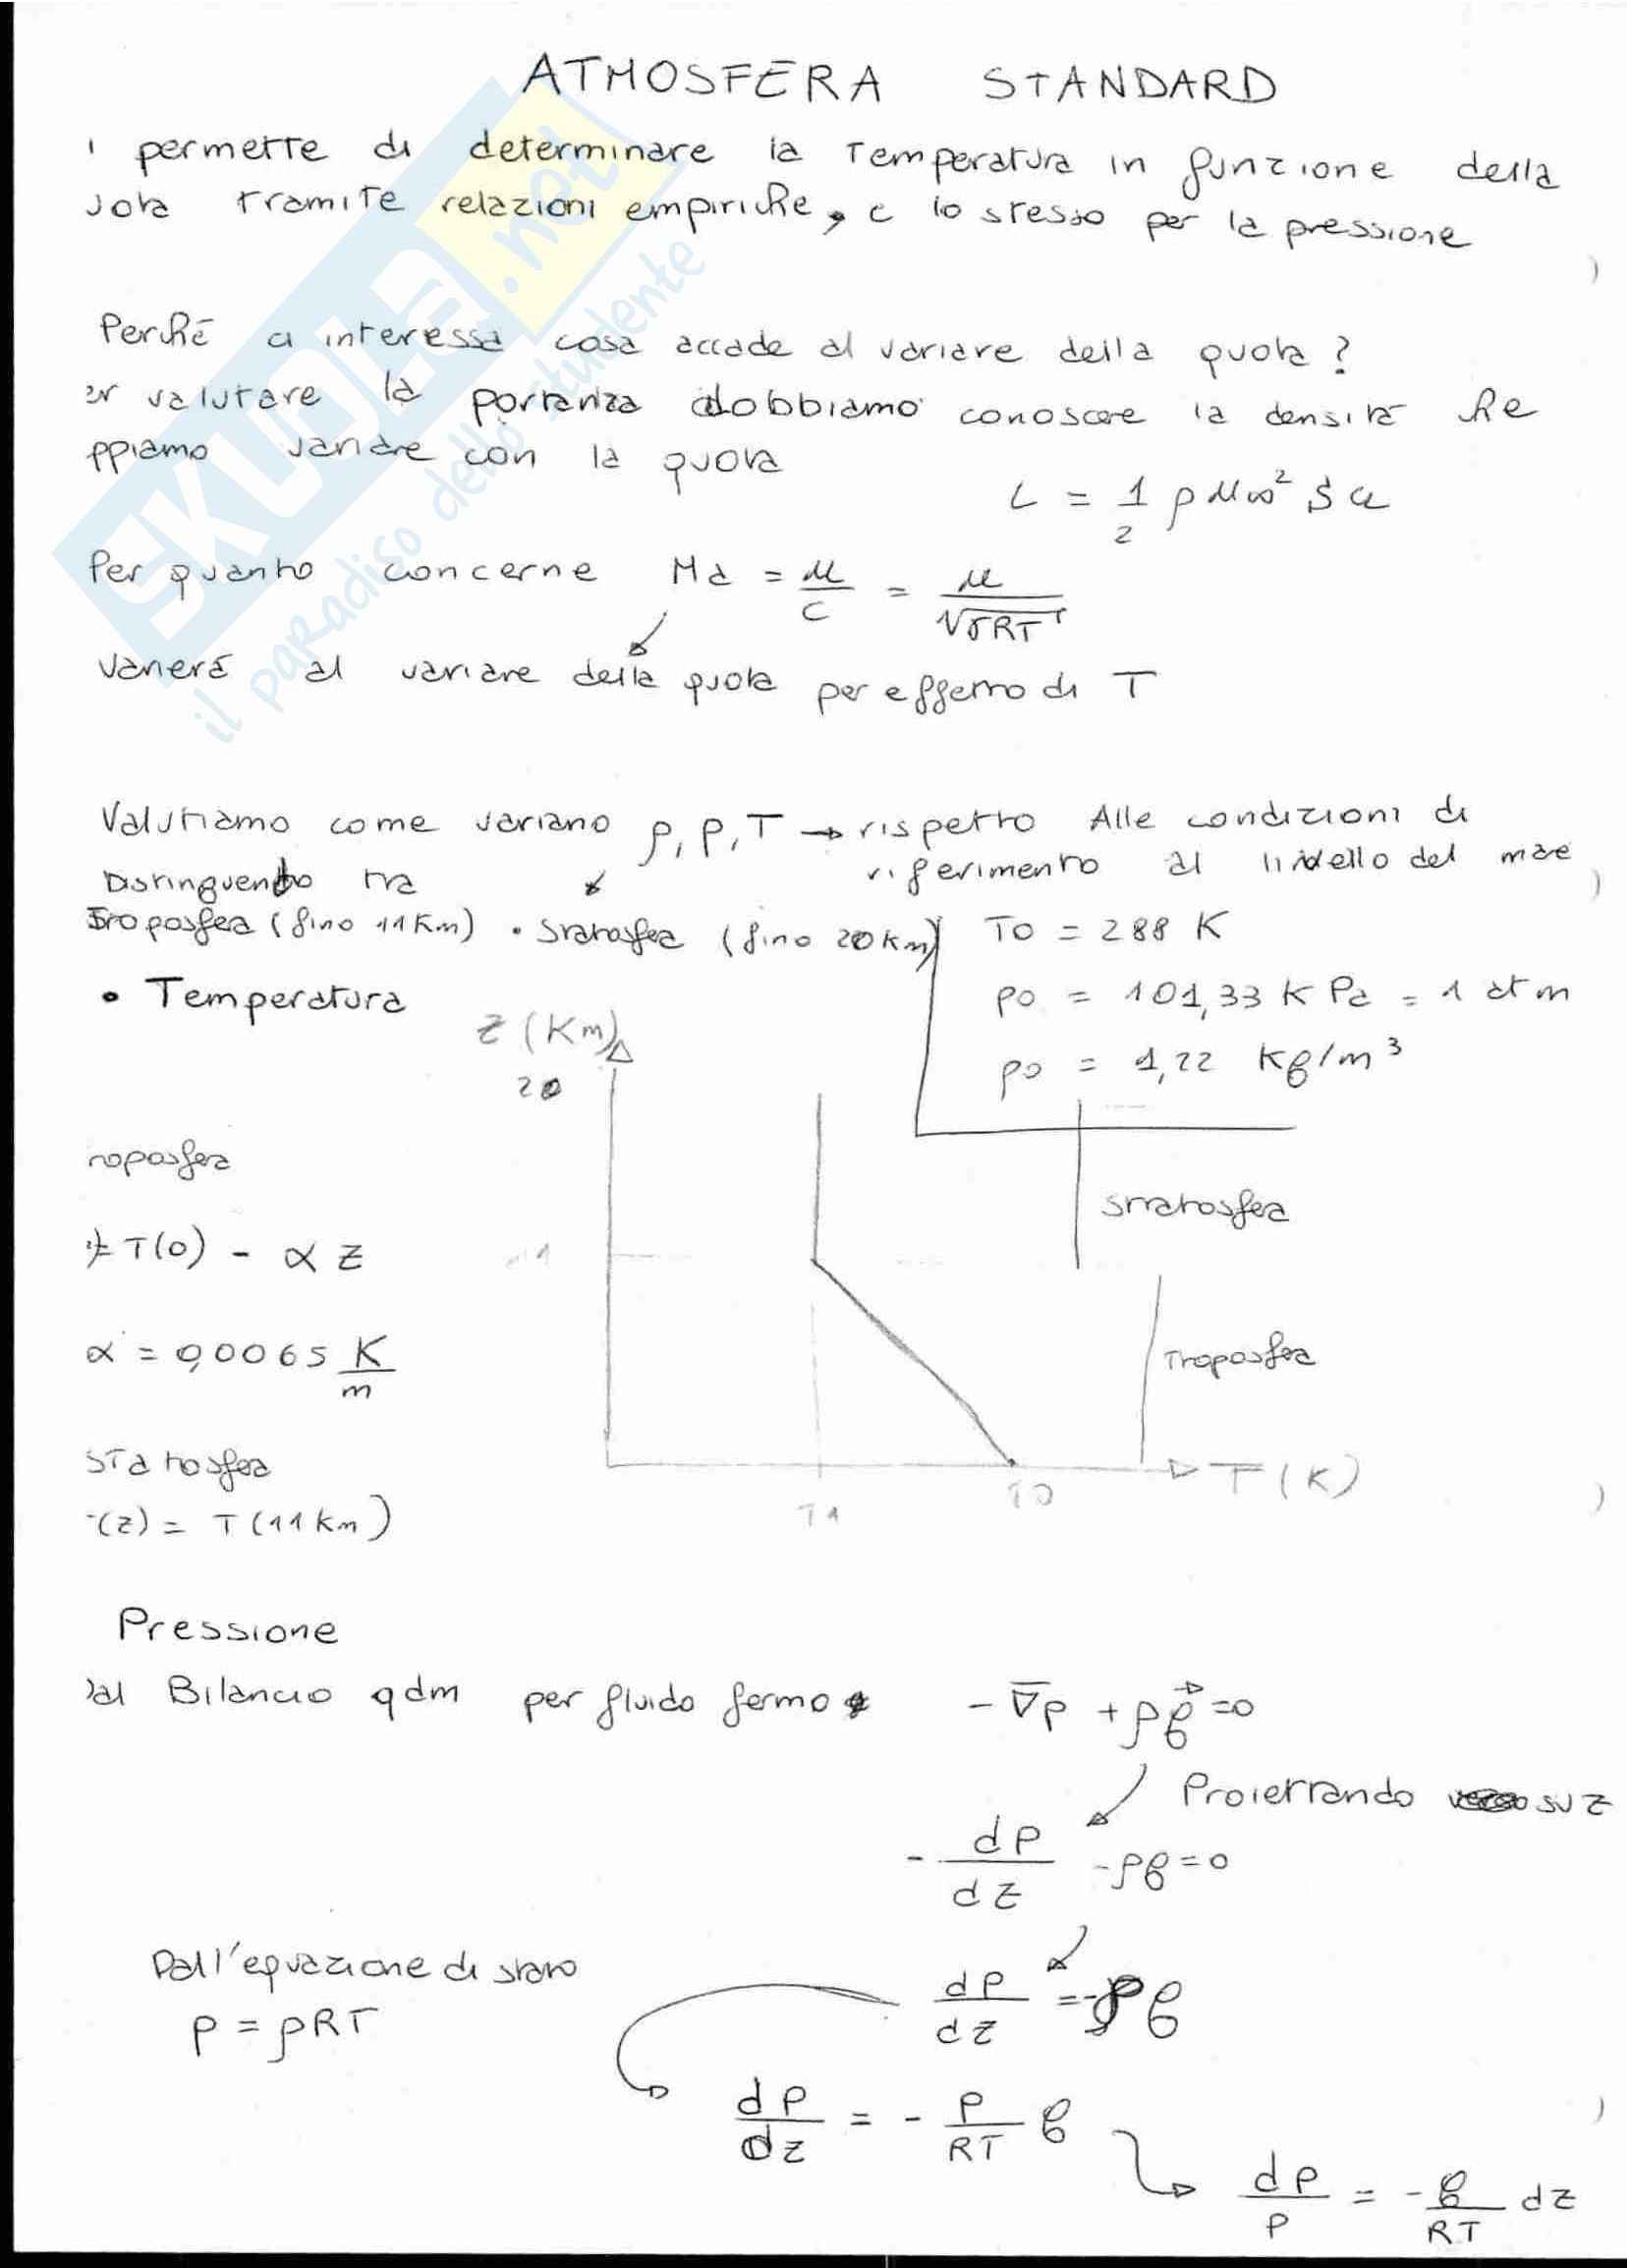 ATMOSFERA STANDARD
i permette di determinare la Temperatura in funzione della
uota tramite relazioni empiriche, e lo stesso per la pressione
Perché ci interessa cosa accade al variare della quota?
er valutare la portanza dobbiamo conoscere la densità che
ppiamo variare con la quota
L = 1/2 ρ u∞² S cL
Per quanto concerne Ma = u/c = u/√γRT
varierà al variare della quota per effetto di T
Valutiamo come variano ρ, p, T → rispetto Alle condizioni di
riferimento al livello del mare
Distinguendo tra
Troposfera (fino 11 Km) • Stratosfera (fino 20 Km)
T0 = 288 K
p0 = 101,33 K Pa = 1 atm
ρ0 = 1,22 Kg/m³
• Temperatura
z (Km)
20
roposfera
Stratosfera
= T(0) - α z
11
α = 0,0065 K/m
Troposfera
Statosfera
T (K)
T1
T0
(z) = T (11 km)
Pressione
al Bilancio qdm per fluido fermo
-∇p + ρg = 0
Proiettando su z
- dp/dz - ρg = 0
Dall'equazione di stato
dp/dz = -ρg
p = ρRT
dp/dz = - p/RT g
dp/p = - g/RT dz
SKUOLA.net
il paradiso dello studente